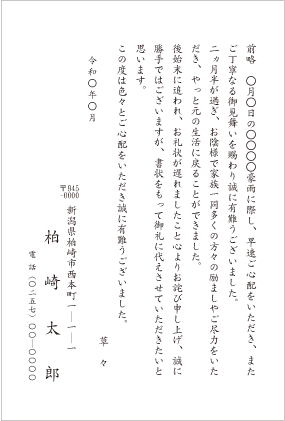 前略　〇月〇日の〇〇〇〇豪雨に際し、早速ご心配をいただき、また
ご丁寧なる御見舞いを賜わり誠に有難うございました。
二ヵ月半が過ぎ、お陰様で家族一同多くの方々の励ましやご尽力をいた
だき、やっと元の生活に戻ることができました。
後始末に追われ、お礼状が遅れましたこと心よりお詫び申し上げ、誠に
勝手ではございますが、書状をもって御礼に代えさせていただきたいと
思います。
この度は色々とご心配をいただき誠に有難うございました。
草々
令和〇年〇月
〒945-0000
新潟県柏崎市西本町一―一―一
柏崎太郎
電話（〇二五七）〇〇―〇〇〇〇